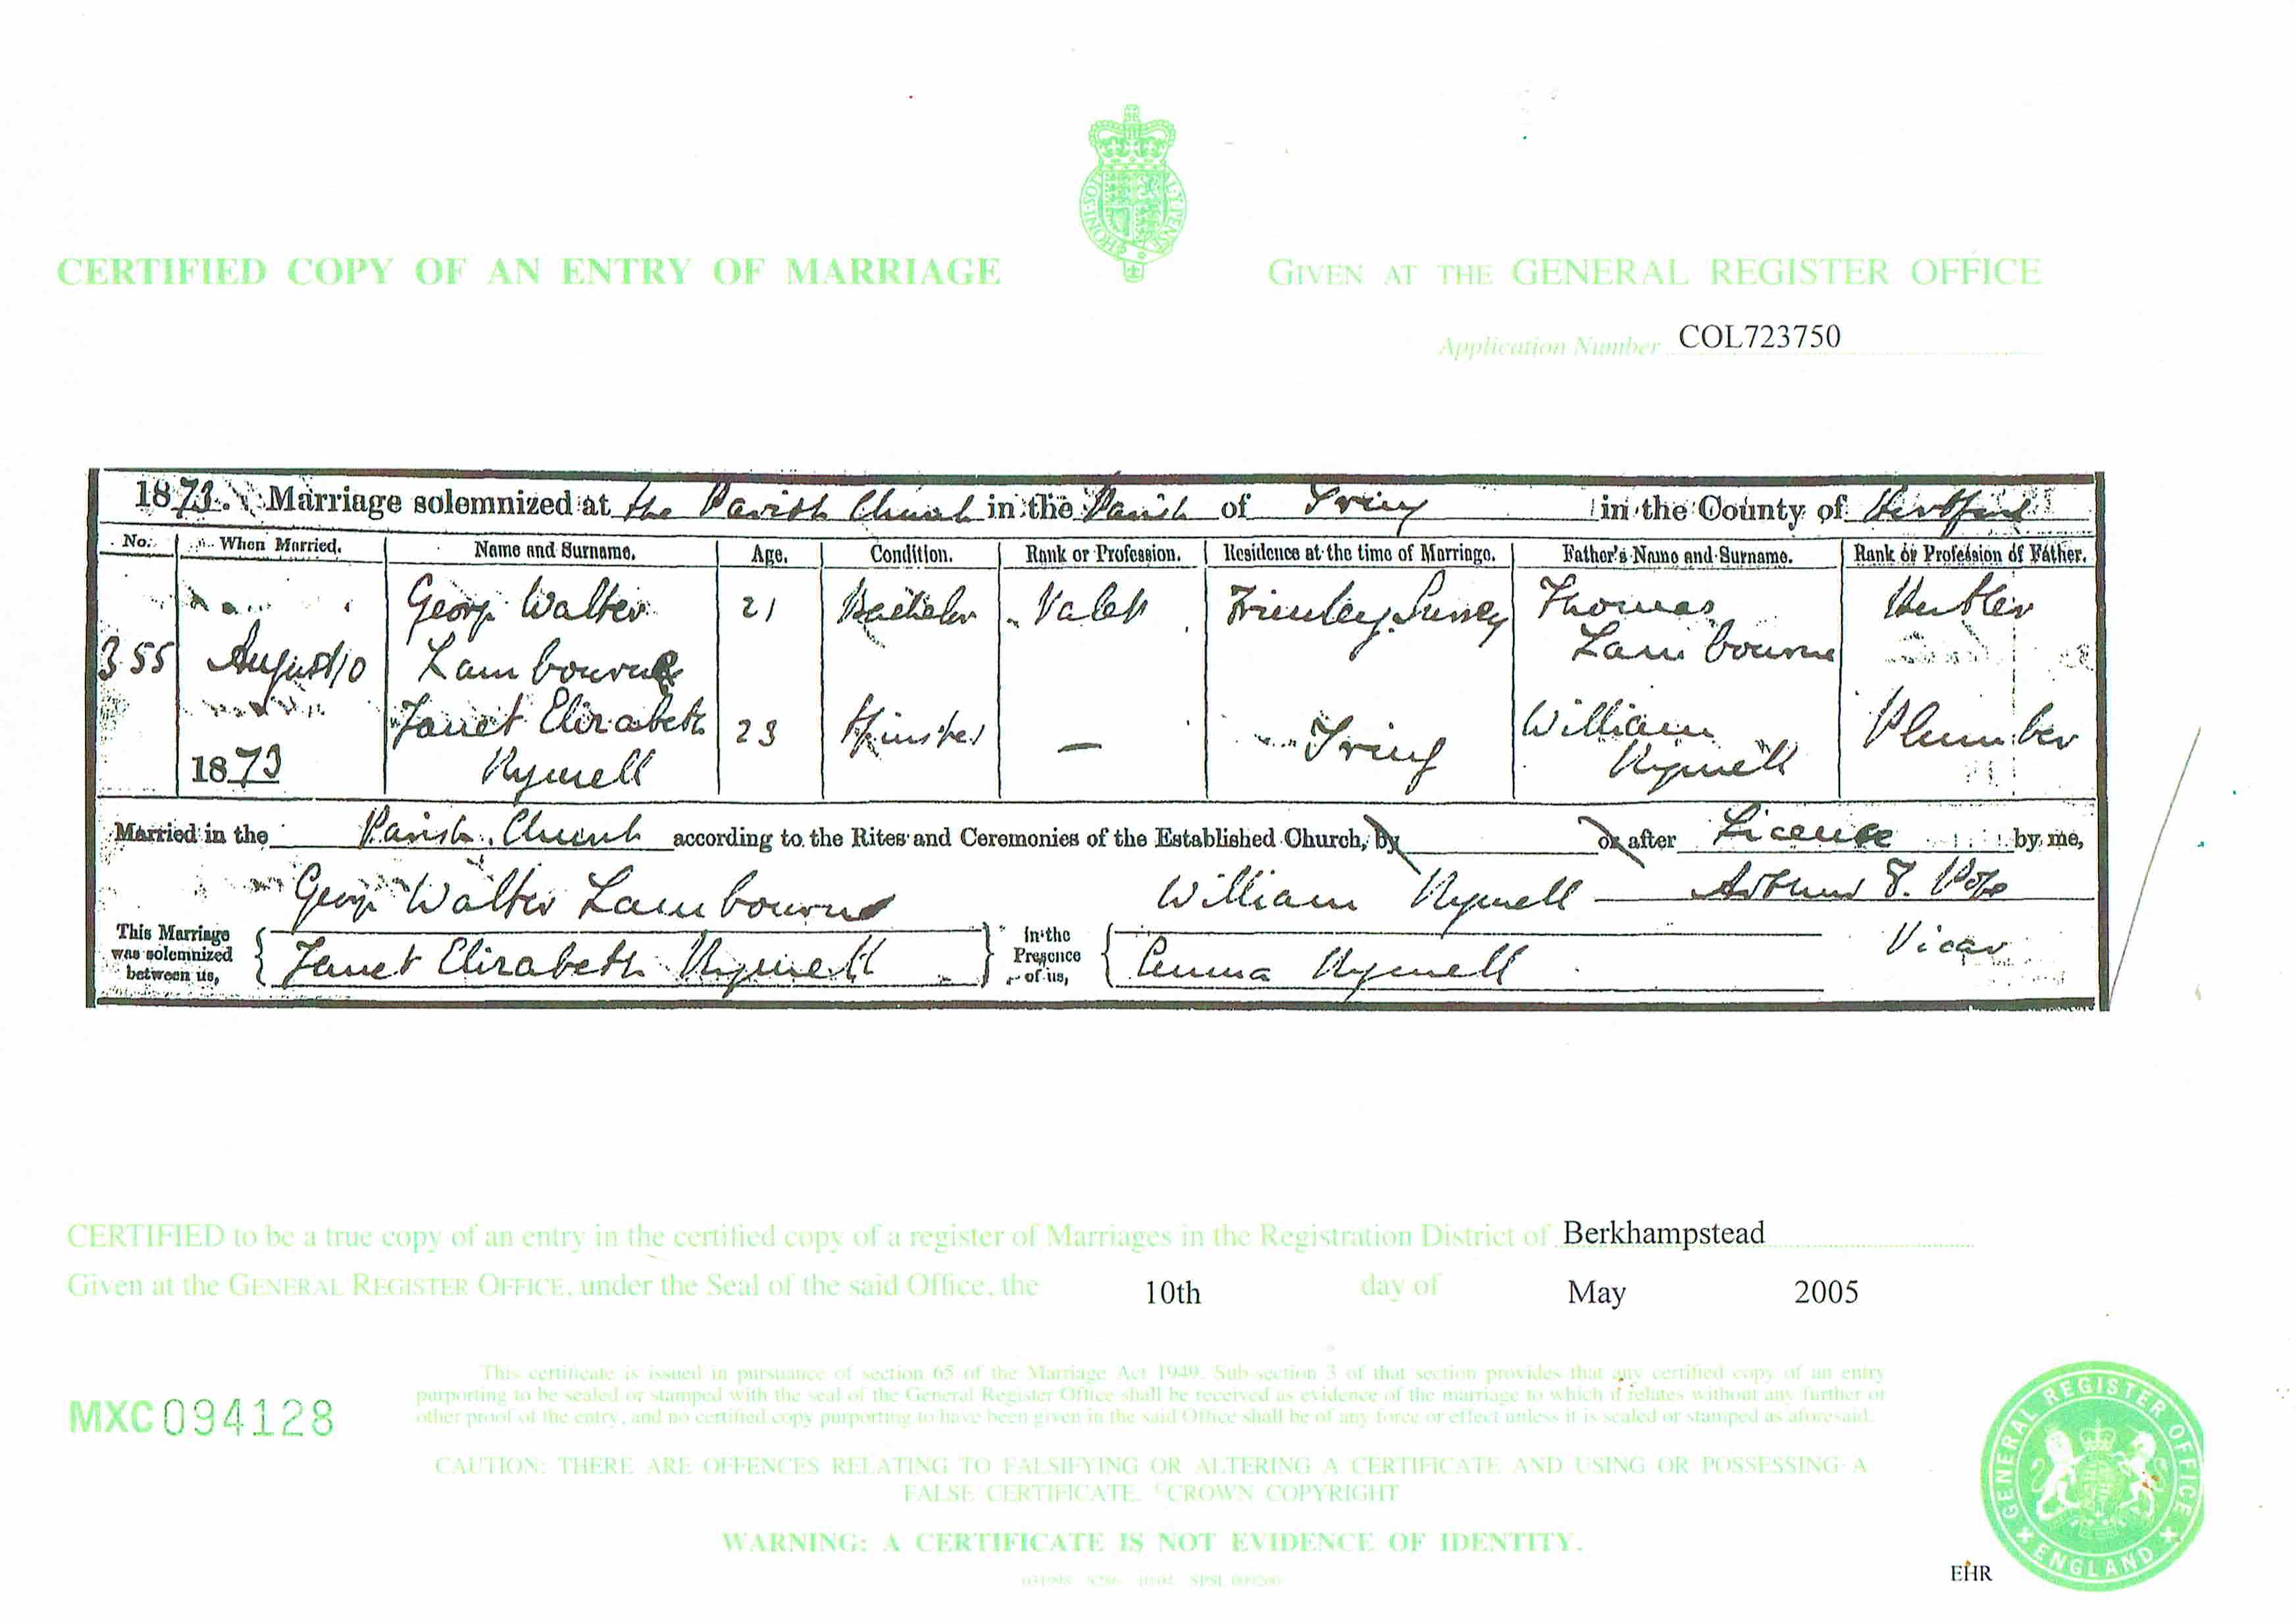 HONI·SOIT
Y·PENSE
CERTIFIED COPY OF AN ENTRY OF MARRIAGE
GIVEN AT THE GENERAL REGISTER OFFICE
Application Number COL723750
1873. Marriage solemnized at the Parish Church in the Parish of Tring in the County of Hertford
No. When Married. Name and Surname. Age. Condition. Rank or Profession. Residence at the time of Marriage. Father's Name and Surname. Rank or Profession of Father.
George Walter 21 Bachelor Valet Frimley Surrey Thomas Butler
355 August 10 Lambourne Lambourne
Janet Elizabeth 23 Spinster — Tring William Plumber
1873 Rymell Rymell
Married in the Parish Church according to the Rites and Ceremonies of the Established Church, by or after License by me,
George Walter Lambourne William Rymell Arthur Pope
This Marriage was solemnized between us, Janet Elizabeth Rymell In the Presence of us, Emma Rymell Vicar
CERTIFIED to be a true copy of an entry in the certified copy of a register of Marriages in the Registration District of Berkhampstead
Given at the GENERAL REGISTER OFFICE, under the Seal of the said Office, the 10th day of May 2005
This certificate is issued in pursuance of section 65 of the Marriage Act 1949. Sub-section 3 of that section provides that any certified copy of an entry
purporting to be sealed or stamped with the seal of the General Register Office shall be received as evidence of the marriage to which it relates without any further or
other proof of the entry, and no certified copy purporting to have been given in the said Office shall be of any force or effect unless it is sealed or stamped as aforesaid.
MXC 094128
CAUTION: THERE ARE OFFENCES RELATING TO FALSIFYING OR ALTERING A CERTIFICATE AND USING OR POSSESSING A
FALSE CERTIFICATE. ©CROWN COPYRIGHT
WARNING: A CERTIFICATE IS NOT EVIDENCE OF IDENTITY.
EHR
GENERAL REGISTER OFFICE
ENGLAND